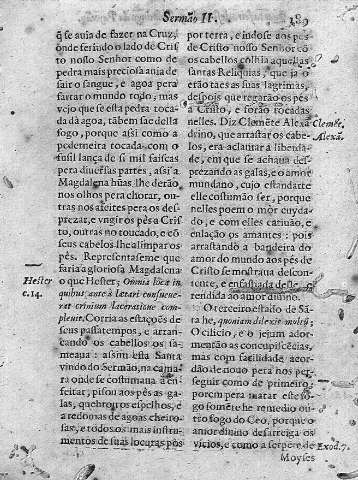 Sermão II. 389
q̃ se auia de fazer na Cruz,
onde ferindo o lado de Cris
to nosso Senhor como de
pedra mais preciosa auia de
sair o sangue, e agoa pera
fartar o mundo todo, mas
vejo que se esta pedra toca-
da dá agoa, tãbem sae della
fogo, porque assi como a
pederneira tocada com o
fusil lança de si mil faiscas
pera diuersas partes, assi a
Magdalena hũas lhe derão
nos olhos pera chorar, ou-
tras nos afeites pera os des-
prezar, e vngir os pés a Cris
to, outras no toucado, e cõ
seus cabellos lhe alimpar os
pés. Representaseme que
faria a gloriosa Magdalena
o que Hester; Omnia loca in
quibus antè lætari consueue-
rat crinium laceratione com-
pleuit. Corria as estações de
seus passatempos, e arran-
cando os cabellos os sa-
meaua: assim esta Santa
vindo do Sermão, na cama
ra onde se costumana a en-
feitar, pisou aos pés as ga-
las, quebrou os espelhos, e
a redomas de agoas cheiro-
sas, e todos os mais instru-
mentos de suas loucuras pos
Hester
c. 14.
por terra, e indose aos pés
de Christo nosso Senhor cõ
os cabellos colhia aquellas
santas Reliquias, que ja o
erão taes as suas lagrimas,
depois que regarão os pés
a Christo, e forão tocadas
nelles. Diz Clemẽte Alexã
drino, que arrastar os cabe-
los, era aclamar a liberda-
de, em que se achaua des-
prezando as galas, e o amor
mundano, cujo estandarte
elle costumão ser, porque
nelles poem o mór cuyda-
do, e com elles catiuão, e
enlação os amantes: pois
arrastando a bandeira do
amor do mundo aos pés de
Christo se mostraua descon-
tente, e enfastiada deste,
rendida ao amor diuino.
O terceiro estado de Sa-
rẽ he, quoniam dilexit multũ;
O cilicio, e o jejum ador-
mentão as concupiscẽcias,
mas com facilidade acor-
dão de nouo pera nos per-
seguir como de primeiro,
porem pera matar este fo-
go somẽte he remedio ou-
tro fogo do Ceo, porque o
amor diuino desarreiga os
vicios, e como a serpẽte de
Clemẽte,
Alexã.
Exod. 7.
Moyses